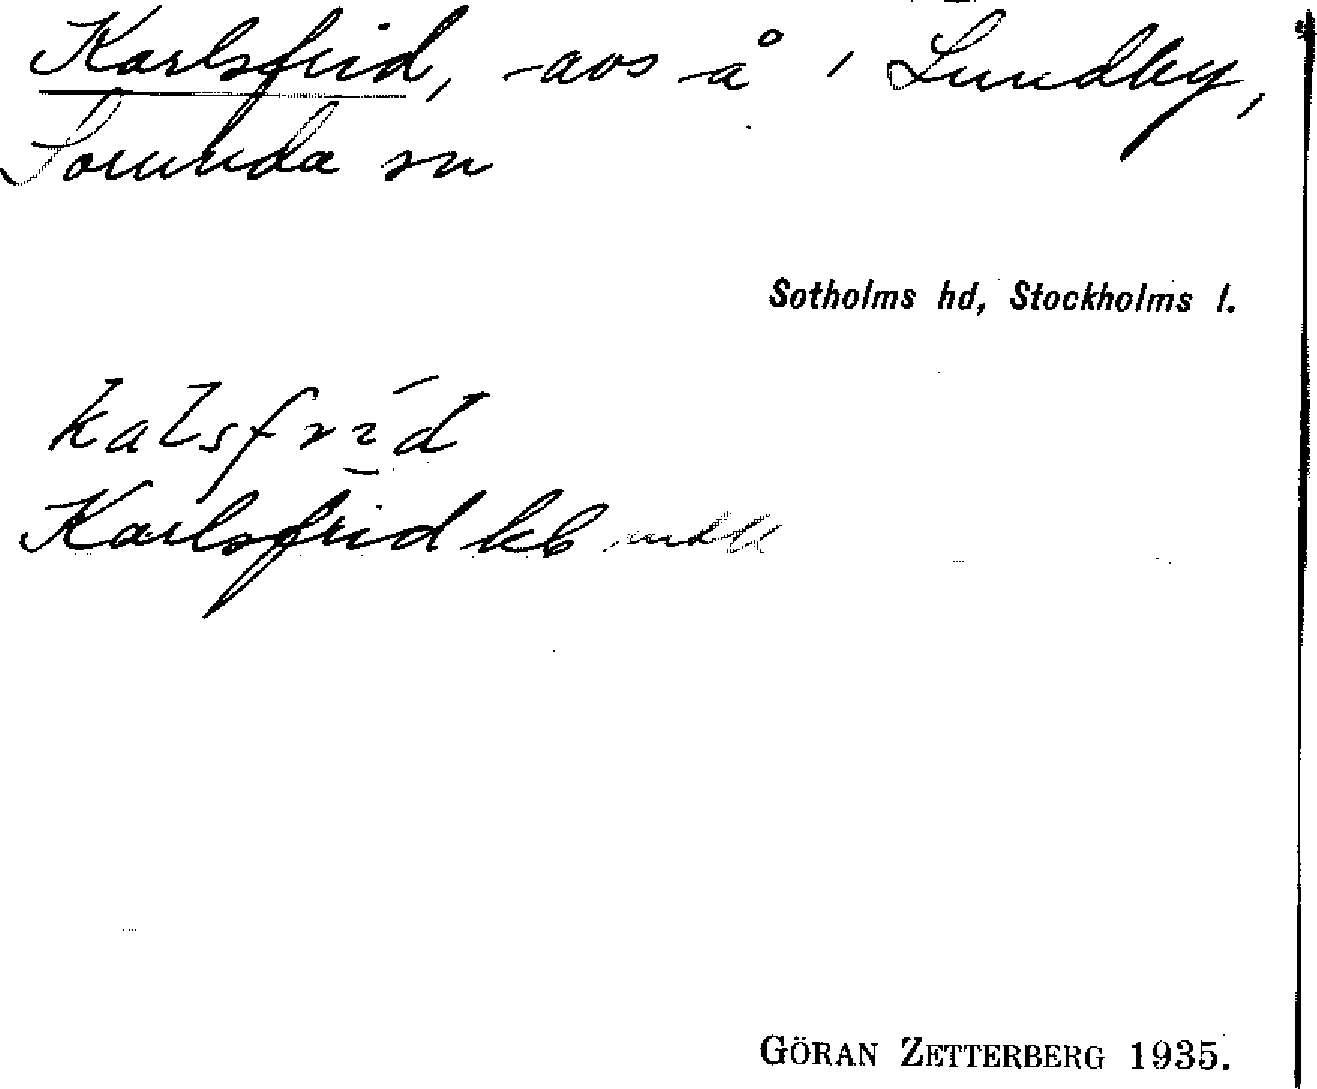 Karlsfrid, -avs å i Lundby,
Sorunda sn
Sotholms hd, Stockholms l.
kalsfrid
Karlsfrid kb
GÖRAN ZETTERBERG 1935.